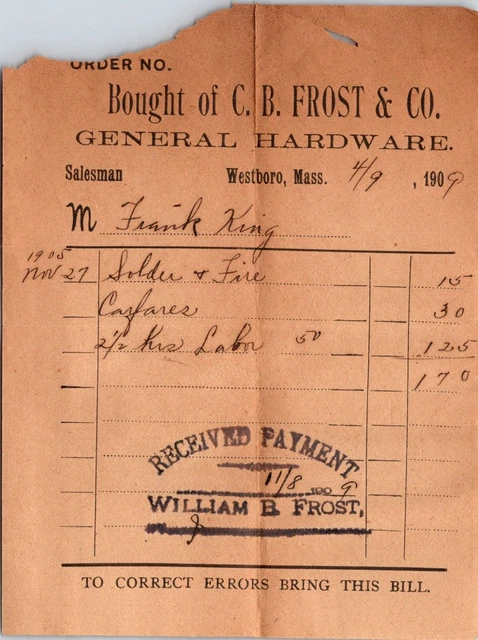 ORDER NO.
Bought of C. B. FROST & CO.
GENERAL HARDWARE.
Salesman Westboro, Mass. 4/9, 1909
M Frank King
1908
Nov 27 Solder & Fire 15
Carfares 30
2 1/2 hrs Labor 50 125
170
RECEIVED PAYMENT
11/8 1909
WILLIAM B FROST,
TO CORRECT ERRORS BRING THIS BILL.